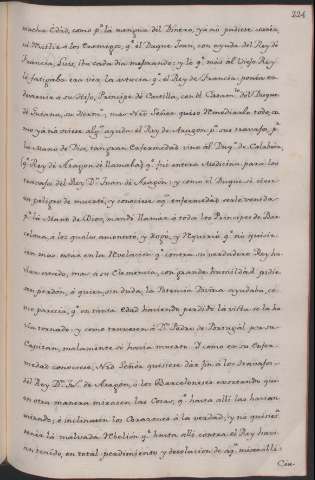 224
mucha Edad, como pr. la mengua del Dinero, ya no pudiese sosten.
ni Hostilizar a los Enemigos, qe. el Duque Joan, con ayuda del Rey de
Francia, Luis, iba cada dia mejorando; y lo qe. mas al Viejo Rey
le fatigaba era ver la astucia qe. el Rey de Francia ponia en
de Guiana, su Hermo.; mas Nro. Señor quiso Remediarlo todo, co
mo ya no oviese algn. ayuda el Rey de Aragon pa. sus travajos, pr.
la Mano de Dios, tan gran Enfermedad vino al Duqe. de Calabria,
qe. Rey de Aragon se llamaba, qe. fue entera Medicina para los
travajos del Rey Dn. Juan de Aragon; y como el Duque se viese
en peligro de muerte, y conociese aqa. enfermedad serle venida
pr. la Mano de Dios, mandó llamar á todos los Principes de Bar-
celona, á los quales amonestó, y Rogó, y Requirió qe. no quisie-
sen mas estar en la Revelacion qe. contra su verdadero Rey ha-
vian tenido, mas á su Clemencia, con grande humildad pidie-
sen perdon, á quien, sin duda, la Potencia Divina ayudaba, co-
mo parecia, qe. en tanta edad haviendo perdido la vista se la ha-
via tornado, y como traxeron á Dn. Pedro de Portugal por su
Capitan, malamente se havia muerto. Y como en su Enfer-
medad conociese, Nro. Señor quisiese dar fin á los travajos
del Rey Dn. Jn. de Aragon, á los Barceloneses exortando que
en otra manera mirasen las Cosas, qe. hasta alli las havian
mirando, é inclinasen los Corazones á la verdad, y no quisien.
tener la malvada Rebelion qe. hasta alli contra el Rey havi-
an tenido, en total perdimiento y desolacion de aqa. miserabli-
Ciu-